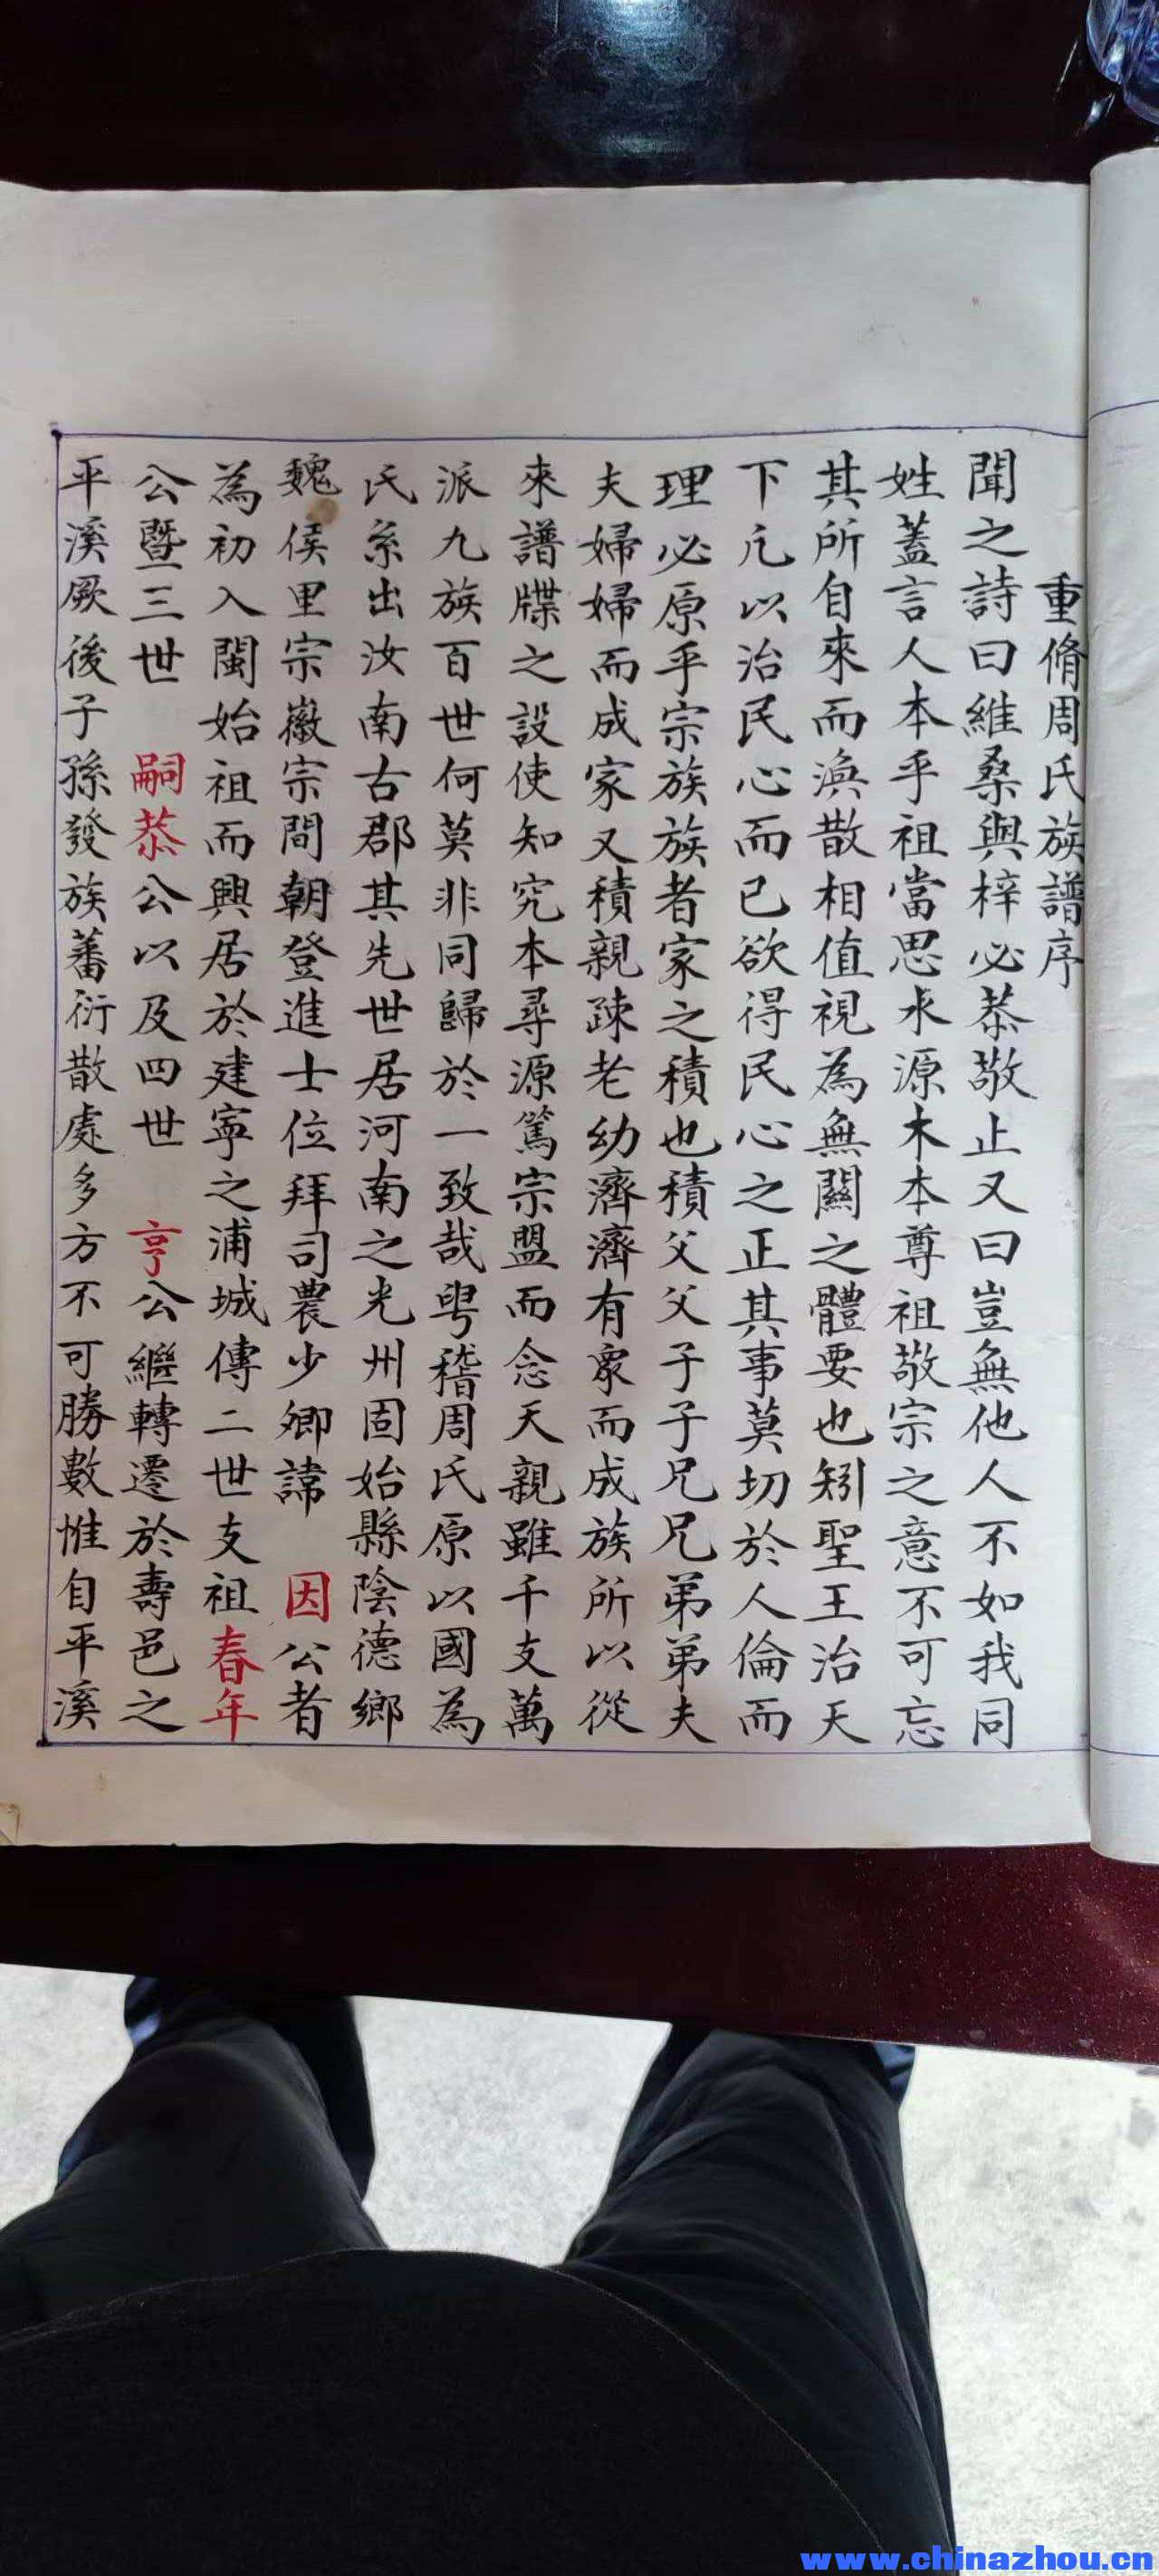 重脩周氏族譜序
聞之詩曰維桑與梓必恭敬止又曰豈無他人不如我同
姓蓋言人本乎祖當思水源木本尊祖敬宗之意不可忘
其所自來而渙散相值視為無關之體要也矧聖王治天
下元以治民心而已欲得民心之正其事莫切於人倫而
理必原乎宗族族者家之積也積父父子子兄兄弟弟夫
夫婦婦而成家又積親疎老幼濟濟有眾而成族所以從
來譜牒之設使知究本尋源篤宗盟而念天親雖千支萬
派九族百世何莫非同歸於一致哉粵稽周氏原以國為
氏系出汝南古郡其先世居河南之光州固始縣陰德鄉
魏侯里宗徽宗間朝登進士位拜司農少卿諱 因公者
為初入閩始祖而興居於建寧之浦城傳二世支祖春年
公暨三世 嗣恭公以及四世 亨公繼轉遷於壽邑之
平溪厥後子孫發族蕃衍散處多方不可勝數惟自平溪
www.chinazhou.cn